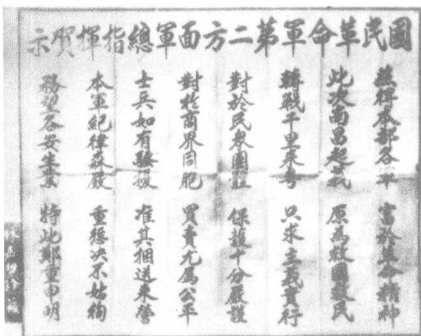 國民革命軍第二方面軍總指揮賀示
照得本部各軍 富於革命精神
此次南昌起義 原為救國救民
轉戰千里來粵 只求主義實行
對於民眾團體 保護十分嚴謹
對於商界同胞 買賣尤屬公平
士兵如有騷擾 准其捆送來營
本軍紀律森嚴 重懲決不姑徇
務望各安生業 特此鄭重申明